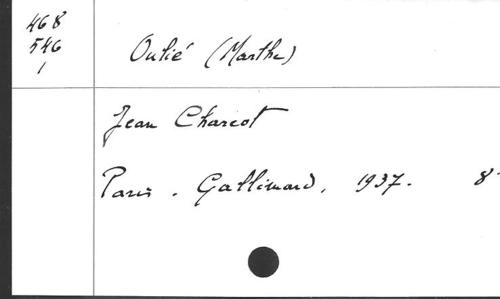 468
546
1
Oulié (Marthe)
Jean Charcot
Paris. Gallimard, 1937. 8°